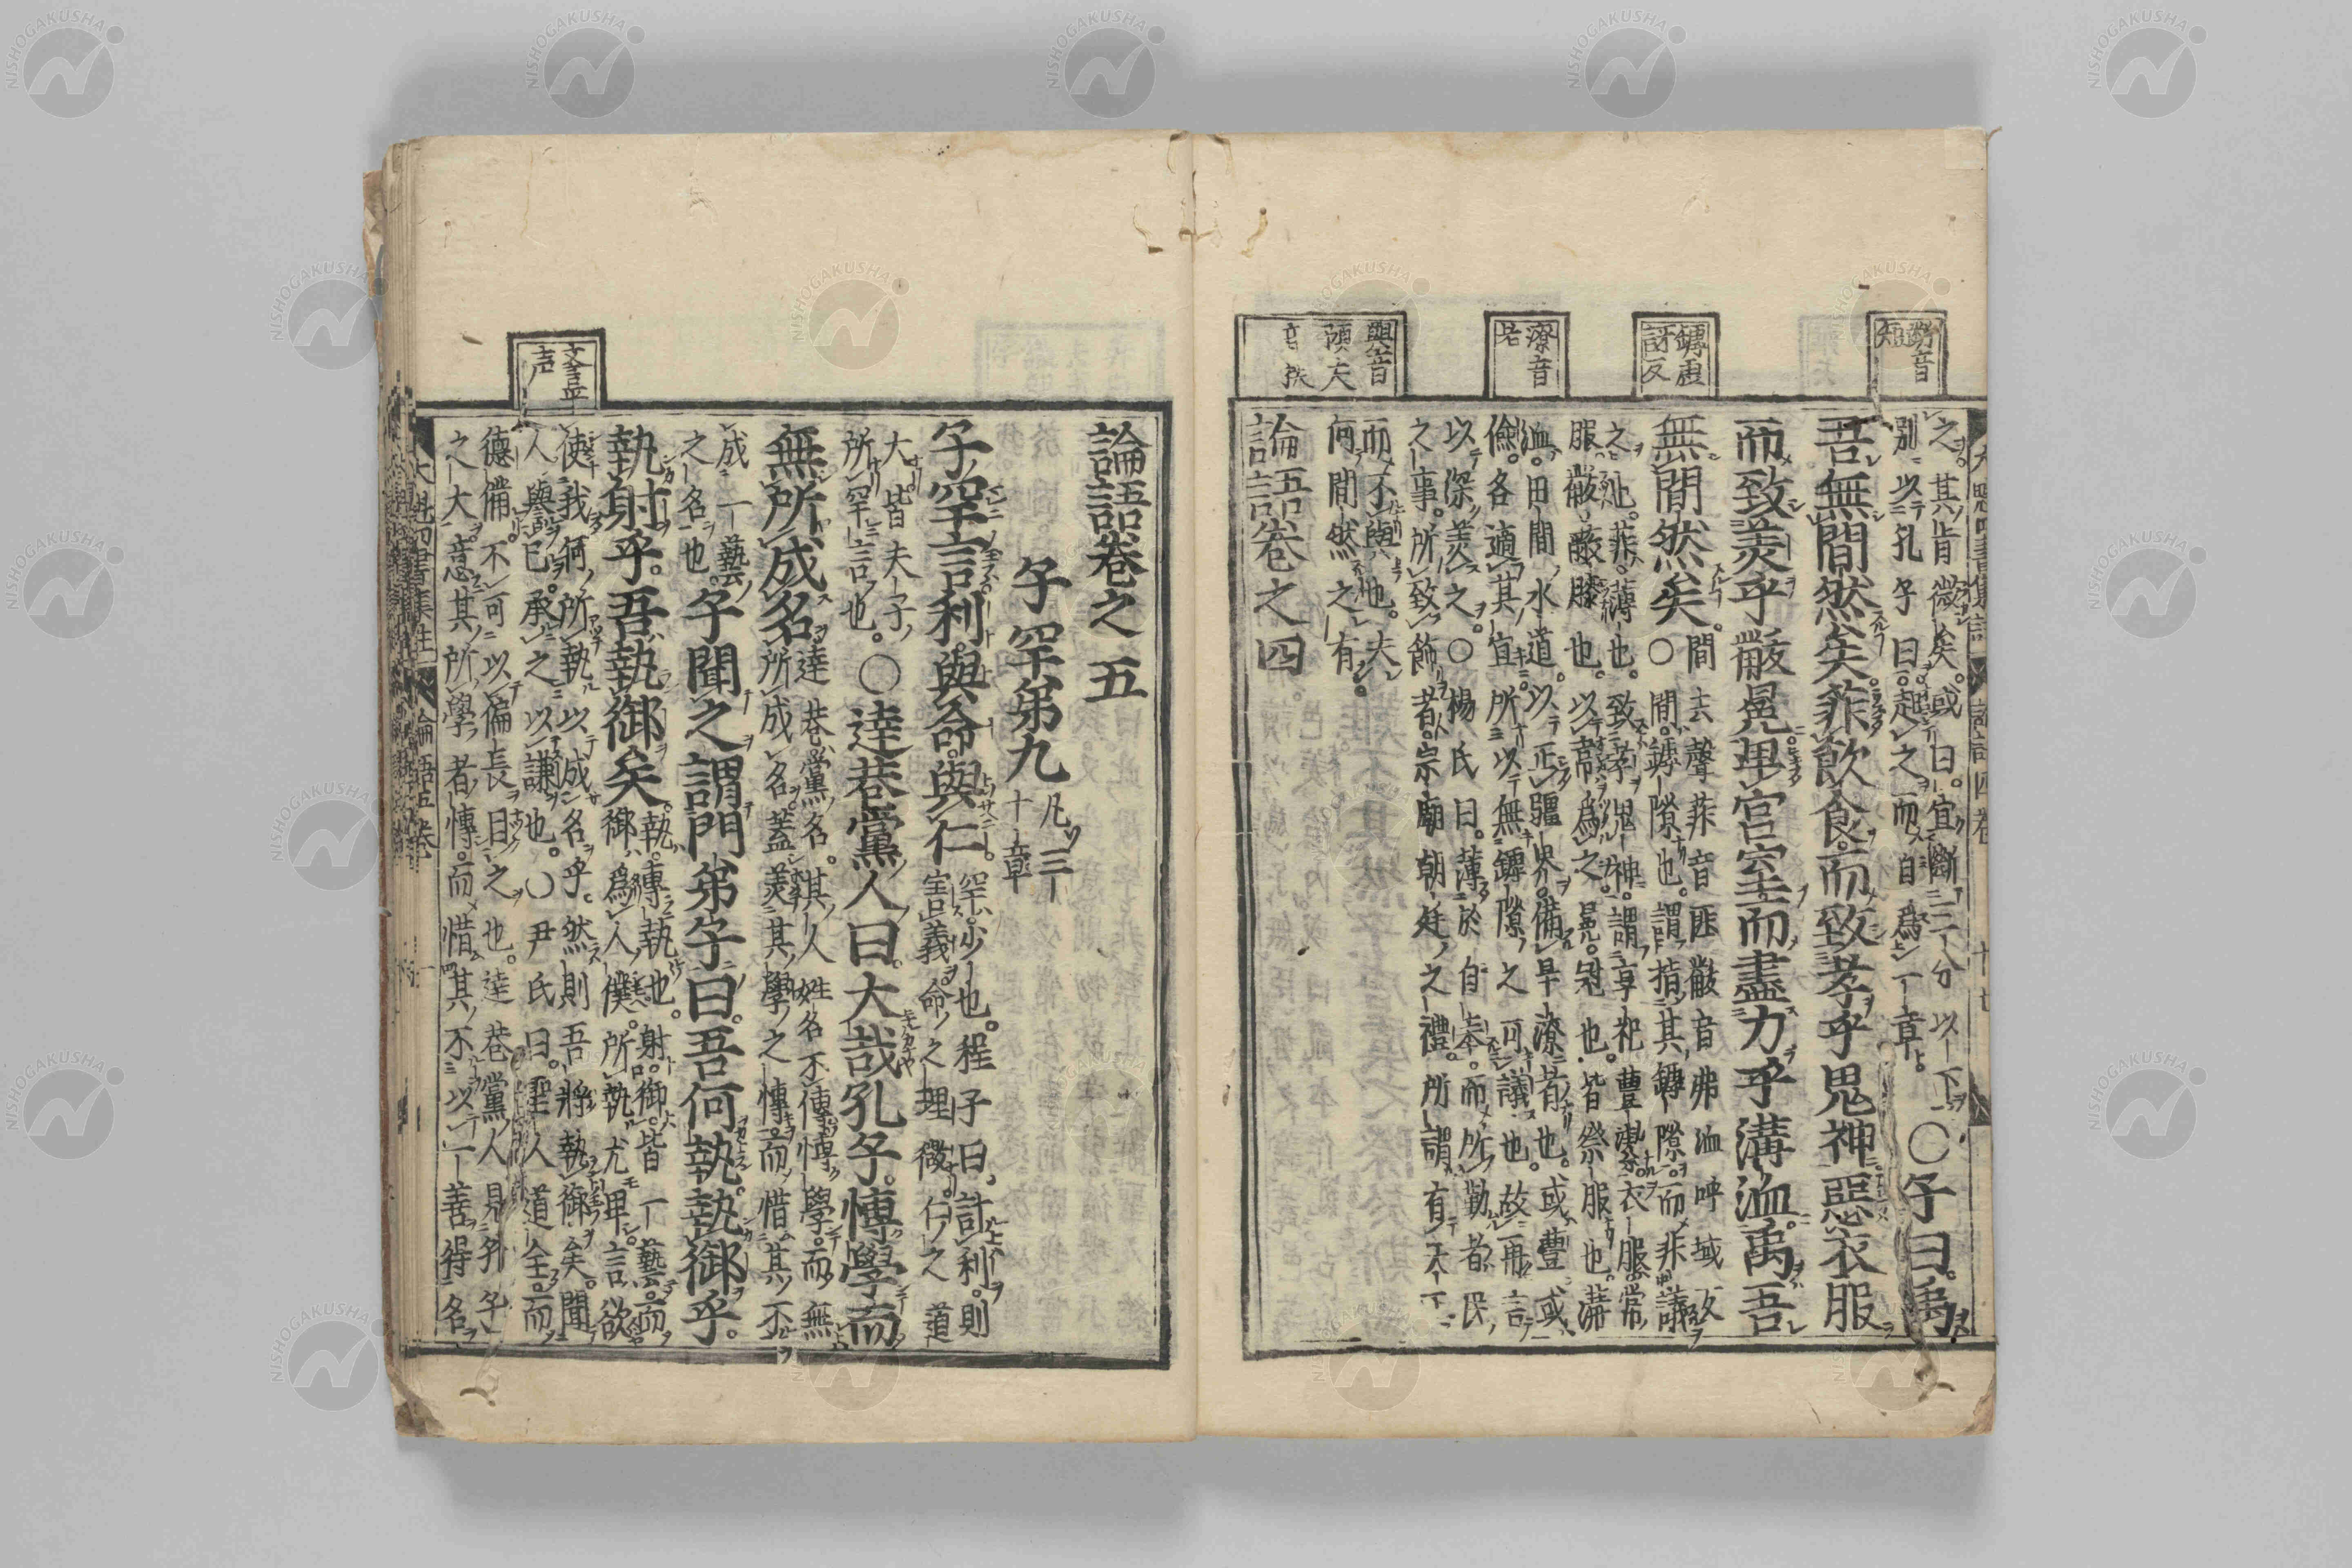 之其肯微矣。或曰。宜斷三分以下。○子曰。禹
別以孔子曰起之而自爲一章。
吾無間然矣。菲飲食。而致孝乎鬼神。惡衣服
而致美乎黻冕。卑宮室而盡力乎溝洫。禹吾
無間然矣。○
間去聲菲音匪黻音弗洫呼域反
間。罅隙也。謂指其罅隙。而非議
之也。菲。薄也。致孝鬼神。謂享祀豐潔。衣服。常
服。黻。蔽膝也。以韋爲之。冕。冠也。皆祭服也。溝
洫。田間水道。以正疆界。備旱潦者也。或豐或
儉。各適其宜。所以無罅隙之可議也。故再言
以深美之。○楊氏曰。薄於自奉。而所勤者民
之事。所致飾者。宗廟朝廷之禮。所謂有天下
而不與也。夫
何間然之有。
論語卷之四
音短
罅虛
訝反
潦音
老
與音
預夫
音扶
論語卷之五
子罕第九
凡三
十章
子罕言利與命。與仁。
罕。少也。程子曰。計利。則
害義命之理微。仁之道
大。皆夫子
所罕言也。○達巷黨人曰。大哉孔子。博學而
無所成名
達巷。黨名。其人姓名不傳。博學而無
所成名。蓋美其學之博。而惜其不
成一藝
之名也。子聞之。謂門弟子曰。吾何執。執御乎。
執射乎。吾執御矣。
執。專執也。射。御。皆一藝。而
御爲人僕。所執尤卑。言欲
使我何所執以成名乎。然則吾將執御矣。聞
人譽己。承之以謙也。○尹氏曰。聖人道全。而
德備。不可以偏長目之也。達巷黨人見孔子
之大。意其所學者博。而惜其不以一善得名
平
声
大魁四書集註 論語五卷